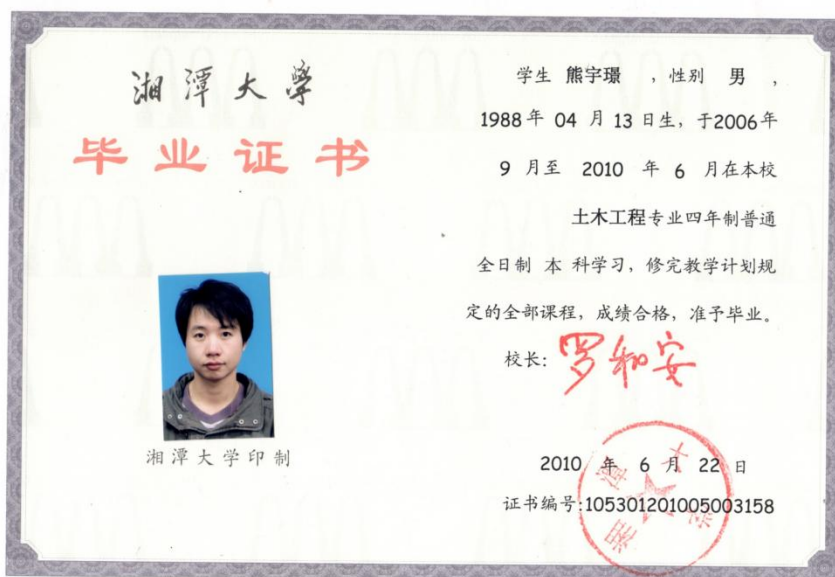 湘潭大学
毕业证书
湘潭大学印制
学生 熊宇璟 ，性别 男 ，
1988年 04 月 13 日生，于2006年
9 月至 2010 年 6 月在本校
土木工程专业四年制普通
全日制 本 科学习，修完教学计划规
定的全部课程，成绩合格，准予毕业。
校长：罗和安
2010 年 6 月 22 日
证书编号:105301201005003158
湘潭大学